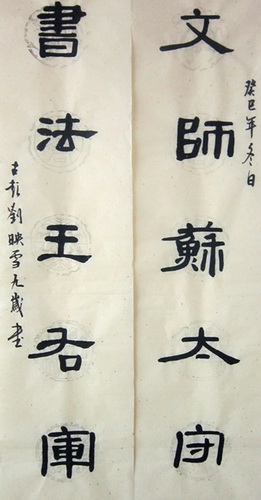 癸巳年冬日
文師蘇太守
書法王右軍
古彭劉映雪九歲書